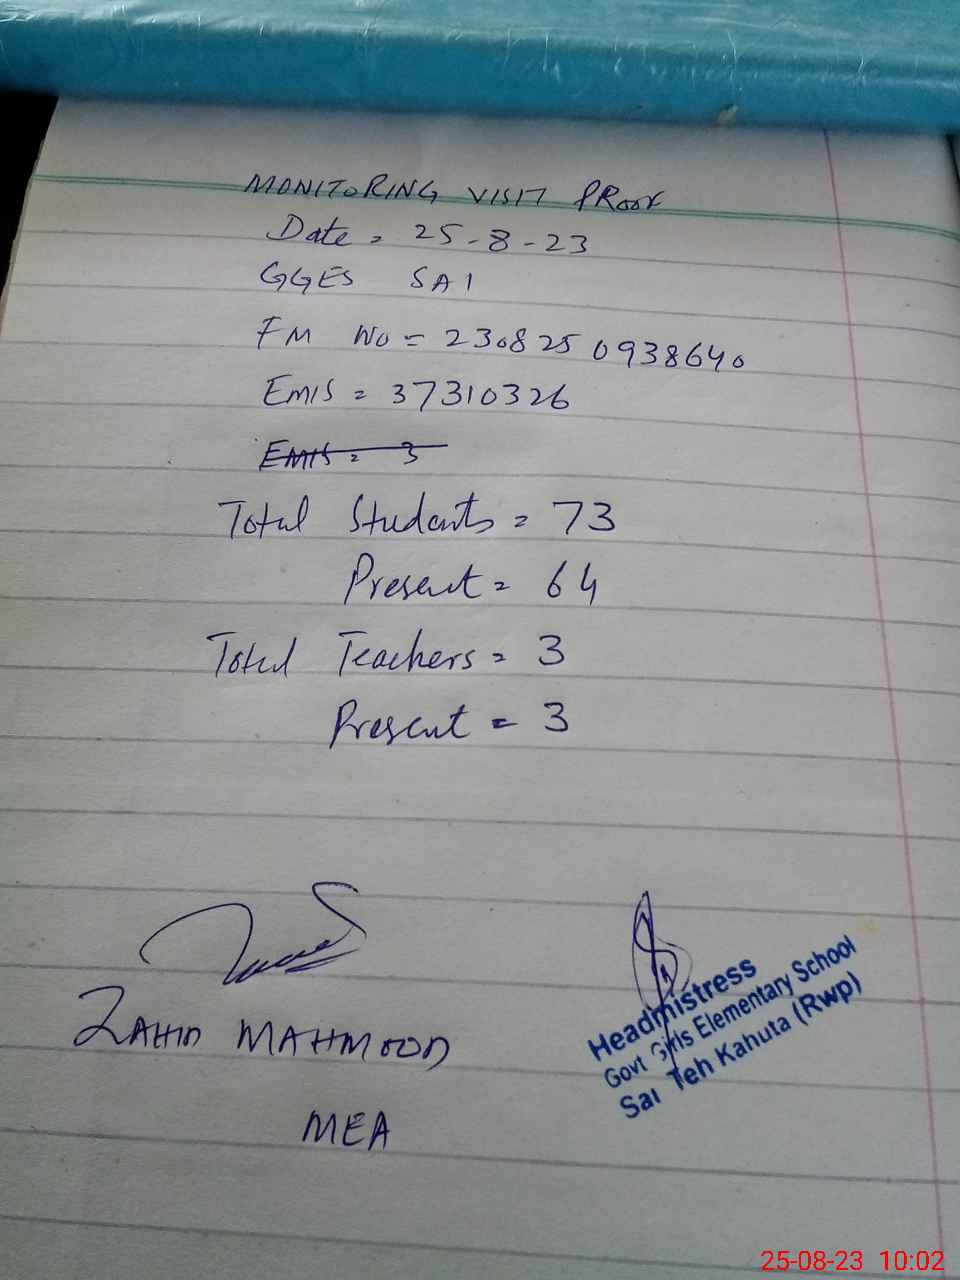 MONITORING VISIT PROOF
Date = 25-8-23
GGES SAI
FM No = 2308250938640
EMIS = 37310326
EMIS = 3
Total Students = 73
Present = 64
Total Teachers = 3
Present = 3
ZAHID MAHMOOD
MEA
Headmistress
Govt Girls Elementary School
Sai Teh Kahuta (Rwp)
25-08-23 10:02